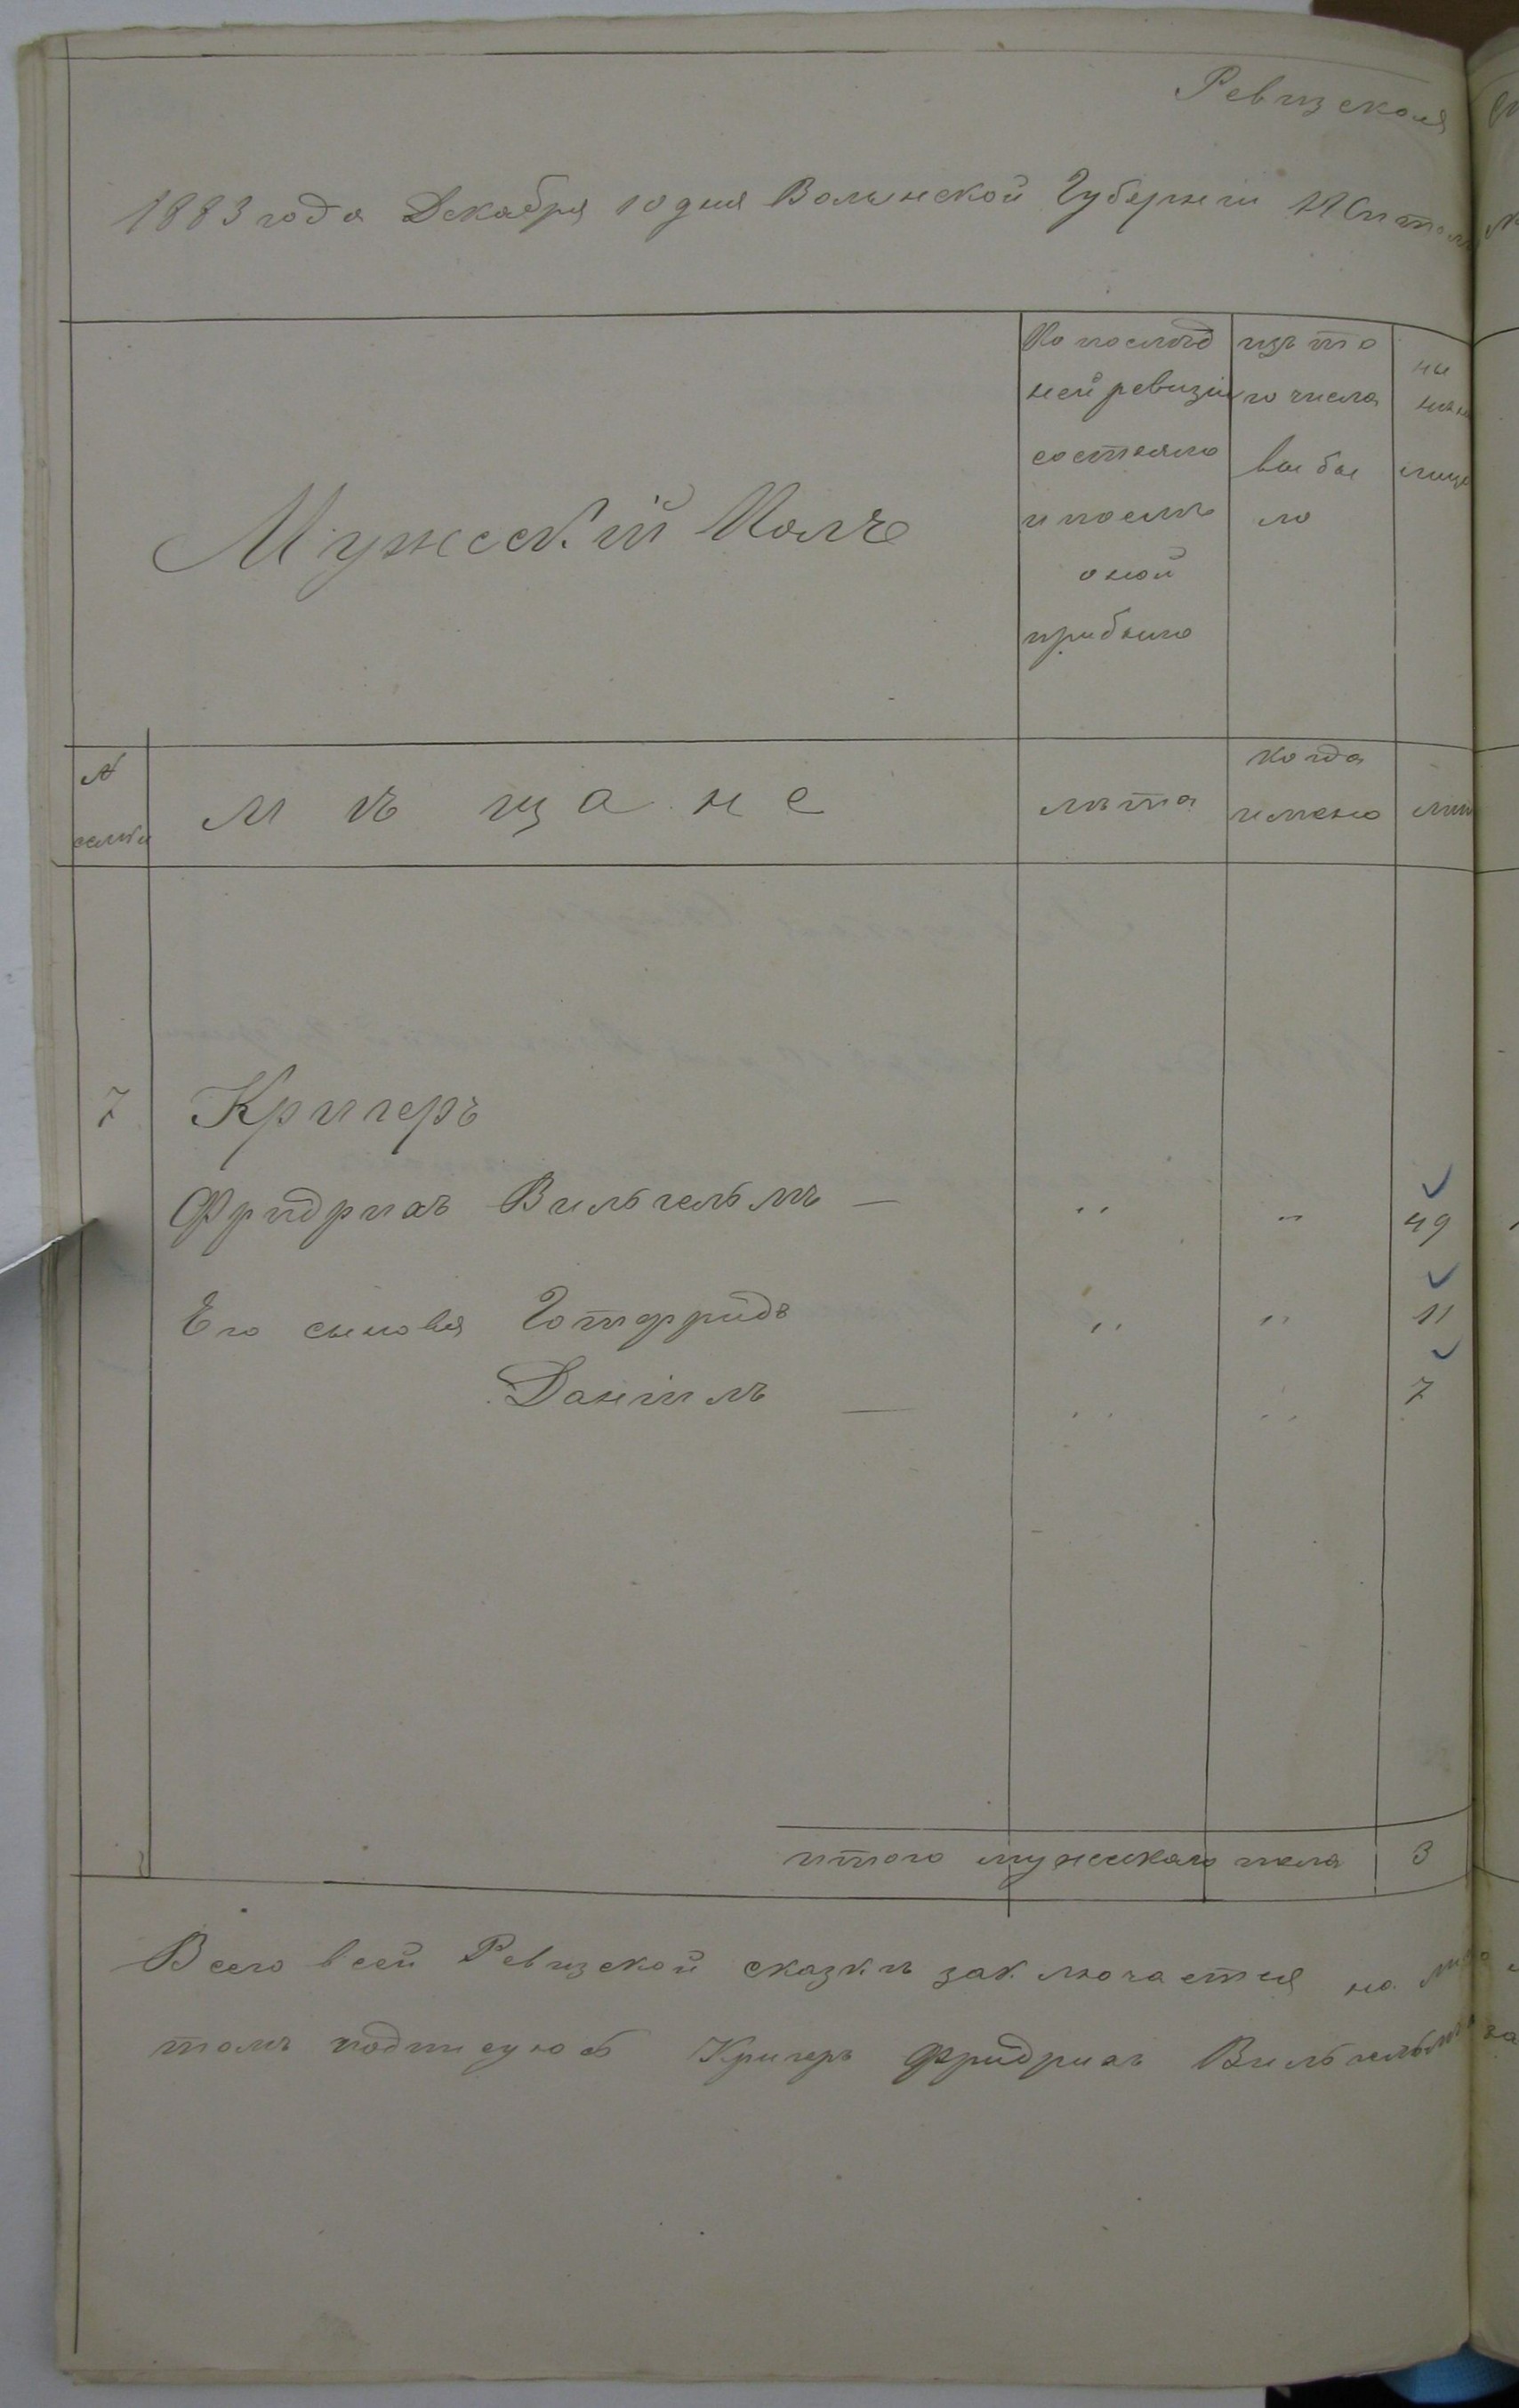 Ревизская
1883 года Декабря 10 дня Волынской Губернии Житом
Мужеский Полъ
По послѣд
ней ревизіи
состояло
и послѣ
оной
прибыло
изъ то
го числа
выбы
ло
ны
нѣ
лицо
№
семьи
мѣщане
лѣта
когда
имено
лѣт
7 Кригеръ
Фридрихъ Вильгельмъ — " " 49
Его сыновья Готфридъ " " 11
Даніилъ — " " 7
итого мужескаго пола 3
Всего всей Ревизской сказкѣ заключается на
томъ подписуюсь Кригеръ Фридрихъ Вильгельмъ